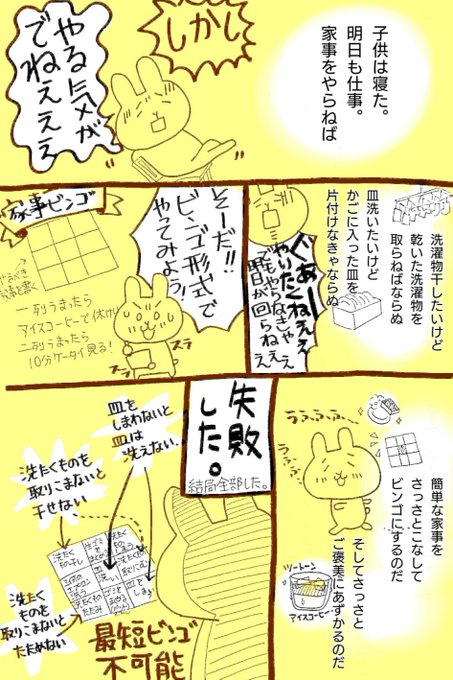 子供は寝た。
明日も仕事。
家事をやらねば
しかし
やる気が
でねええ
洗濯物干したいけど
乾いた洗濯物を
取らねばならぬ
皿洗いたいけど
かごに入った皿を
片付けなきゃならぬ
ぐあー
やりたくねええ
でもやらなきゃ
明日が回らねえ
そーだ!!
ビンゴ形式で
やってみよう!
ズラ
ズラ
家事ビンゴ
一列うまったら
アイスコーヒーで休けい
二列うまったら
10分ケータイ見る!
うふふふ…
うふふ
簡単な家事を
さっさとこなして
ビンゴにするのだ
そしてさっさと
ご褒美にあずかるのだ
ツートーン
アイスコーヒー
失敗
した。
結局全部した。
皿を
しまわないと
皿は
洗えない。
洗たくものを
取りこまないと
干せない
洗たく
ものを
取りこまないと
たためない
最短ビンゴ
不可能